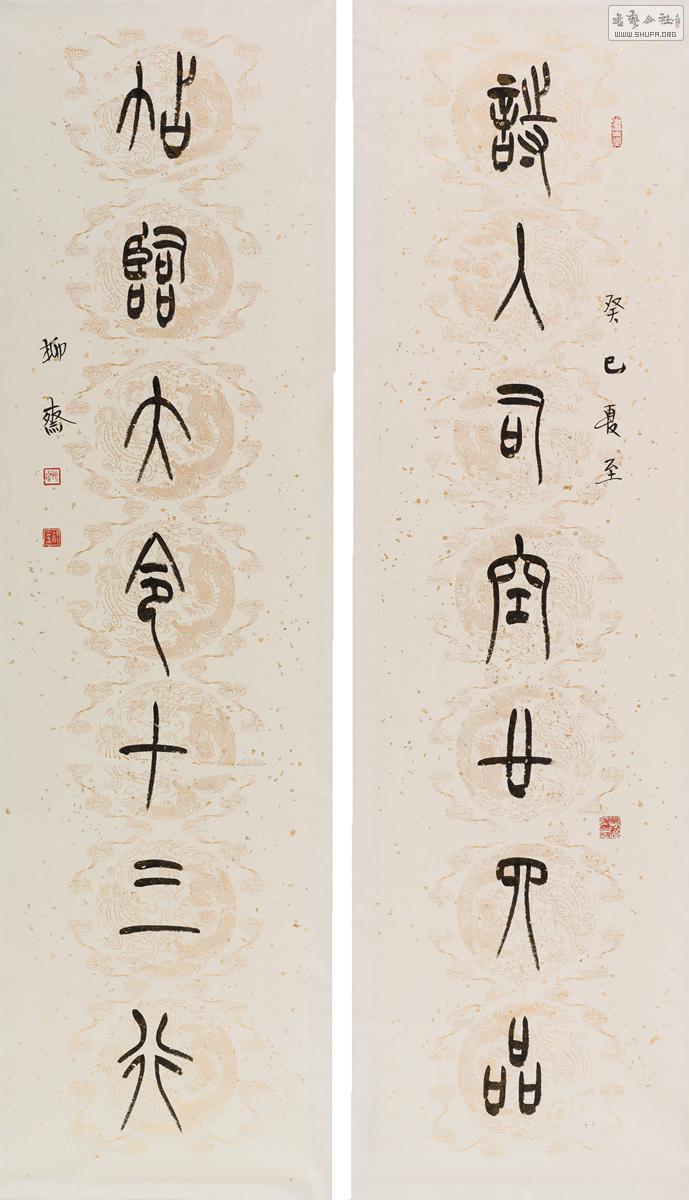 书艺公社
WWW.SHUFA.ORG
癸巳夏至
詩入司空廿四品
帖臨大令十三行
柳齋